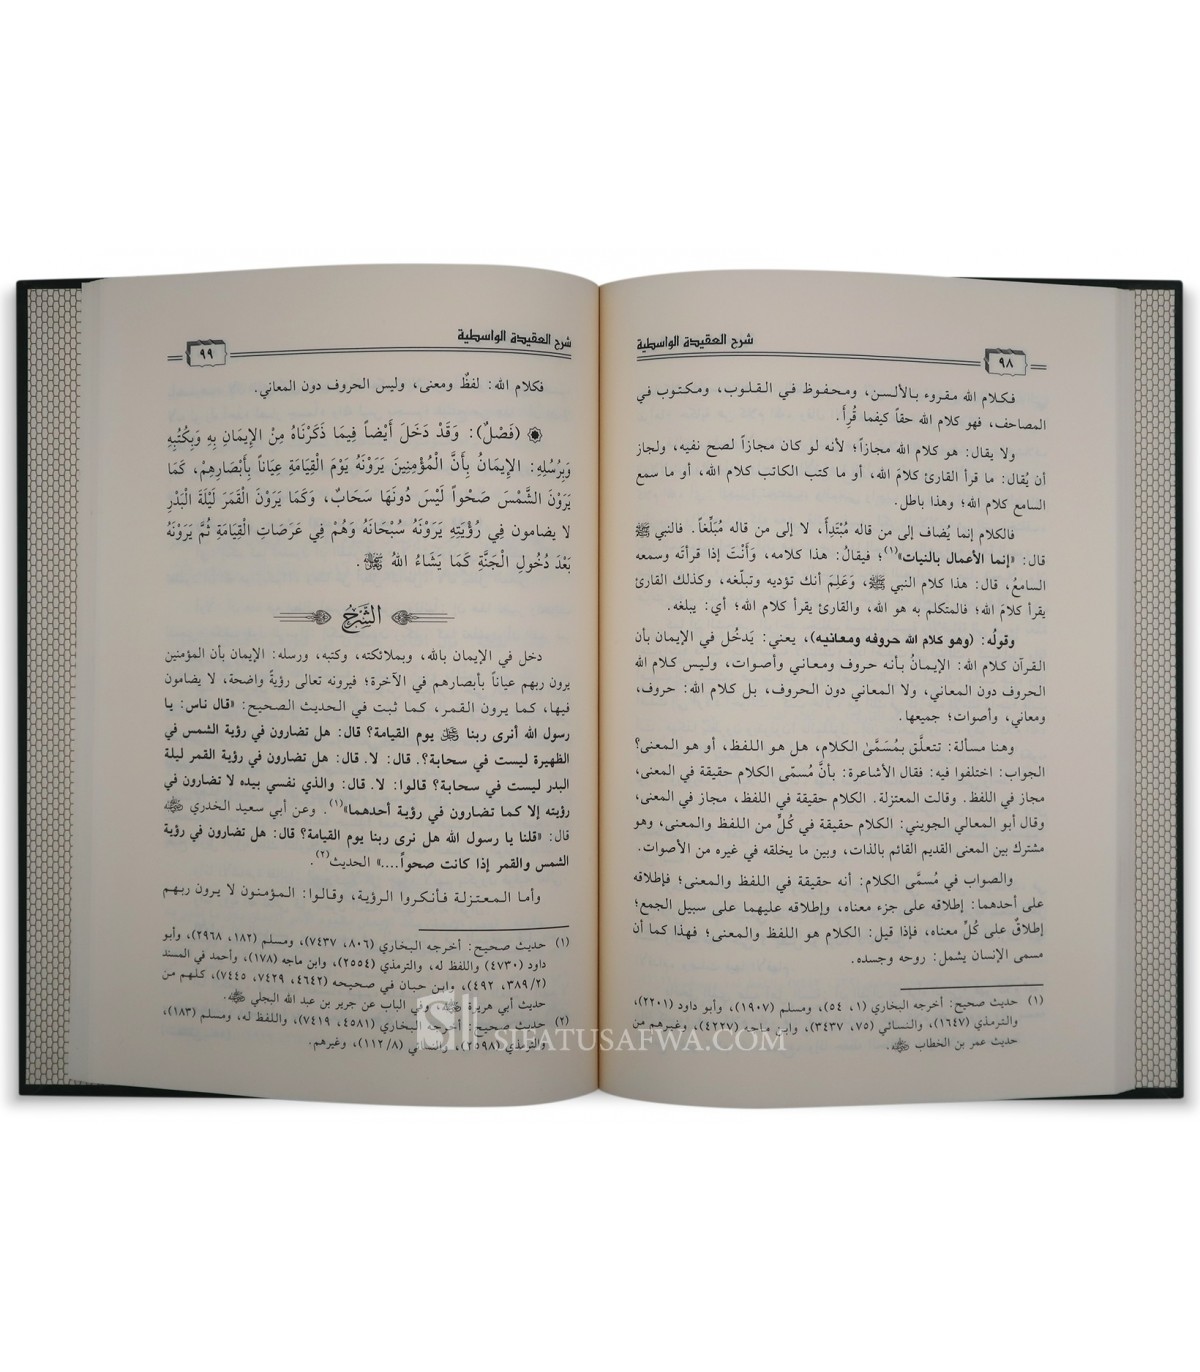 شرح العقيدة الواسطية
٩٨
فكلام الله مقروء بالألسن، ومحفوظ في القلوب، ومكتوب في
المصاحف، فهو كلام الله حقاً كيفما قُرِأَ.
ولا يقال: هو كلام الله مجازاً؛ لأنه لو كان مجازاً لصح نفيه، ولجاز
أن يُقال: ما قرأ القارئ كلامَ الله، أو ما كتب الكاتب كلام الله، أو ما سمع
السامع كلام الله؛ وهذا باطل.
فالكلام إنما يُضاف إلى من قاله مُبْتَدِأً، لا إلى من قاله مُبَلِّغاً. فالنبي ﷺ
قال: «إنما الأعمال بالنيات»(١)؛ فيقالُ: هذا كلامه، وَأَنْتَ إذا قرأتَه وسمعه
السامعُ، قال: هذا كلام النبي ﷺ، وَعَلِمَ أنك تؤديه وتبلّغه، وكذلك القارئ
يقرأ كلامَ الله؛ فالمتكلم به هو الله، والقارئ يقرأ كلام الله؛ أي: يبلغه.
وقولُه: (وهو كلام الله حروفه ومعانيه)، يعني: يَدخُل في الإيمان بأن
القرآن كلام الله: الإيمانُ بأنه حروف ومعاني وأصوات، وليس كلام الله
الحروف دون المعاني، ولا المعاني دون الحروف، بل كلام الله: حروف،
ومعاني، وأصوات؛ جميعها.
وهنا مسألة: تتعلَّق بمُسَمَّىٰ الكلام، هل هو اللفظ، أو هو المعنى؟
الجواب: اختلفوا فيه: فقال الأشاعرة: بأنَّ مُسمّى الكلام حقيقة في المعنى،
مجاز في اللفظ. وقالت المعتزلة. الكلام حقيقة في اللفظ، مجاز في المعنى،
وقال أبو المعالي الجويني: الكلام حقيقة في كُلٍّ من اللفظ والمعنى، وهو
مشترك بين المعنى القديم القائم بالذات، وبين ما يخلقه في غيره من الأصوات.
والصواب في مُسمَّى الكلام: أنه حقيقة في اللفظ والمعنى؛ فإطلاقه
على أحدهما: إطلاقه على جزء معناه، وإطلاقه عليهما على سبيل الجمع؛
إطلاقٌ على كُلِّ معناه، فإذا قيل: الكلام هو اللفظ والمعنى؛ فهذا كما أن
مسمى الإنسان يشمل: روحه وجسده.
(١) حديث صحيح: أخرجه البخاري (١، ٥٤)، ومسلم (١٩٠٧)، وأبو داود (٢٢٠١)،
والترمذي (١٦٤٧)، والنسائي (٧٥، ٣٤٣٧)، وابن ماجه (٤٢٢٧)، وغيرهم من
حديث عمر بن الخطاب رضي الله عنه.
شرح العقيدة الواسطية
٩٩
فكلام الله: لفظٌ ومعنى، وليس الحروف دون المعاني.
(فَصْلٌ): وَقَدْ دَخَلَ أَيْضاً فِيمَا ذَكَرْنَاهُ مِنْ الإِيمَانِ بِهِ وَبِكُتُبِهِ
وَبِرُسُلِهِ: الإِيمَانُ بِأَنَّ الْمُؤْمِنِينَ يَرَوْنَهُ يَوْمَ الْقِيَامَةِ عِيَاناً بِأَبْصَارِهِمْ، كَمَا
يَرَوْنَ الشَّمْسَ صَحْواً لَيْسَ دُونَهَا سَحَابٌ، وَكَمَا يَرَوْنَ الْقَمَرَ لَيْلَةَ الْبَدْرِ
لا يضامون فِي رُؤْيَتِهِ يَرَوْنَهُ سُبْحَانَهُ وَهُمْ فِي عَرَصَاتِ الْقِيَامَةِ ثُمَّ يَرَوْنَهُ
بَعْدَ دُخُولِ الْجَنَّةِ كَمَا يَشَاءُ اللهُ ﷻ.
الشَّرْحُ
دخل في الإيمان بالله، وبملائكته، وكتبه، ورسله: الإيمان بأن المؤمنين
يرون ربهم عياناً بأبصارهم في الآخرة؛ فيرونه تعالى رؤيةً واضحة، لا يضامون
فيها، كما يرون القمر، كما ثبت في الحديث الصحيح: «قال ناس: يا
رسول الله أنرى ربنا ﷻ يوم القيامة؟ قال: هل تضارون في رؤية الشمس في
الظهيرة ليست في سحابة؟. قال: لا. قال: هل تضارون في رؤية القمر ليلة
البدر ليست في سحابة؟ قالوا: لا. قال: والذي نفسي بيده لا تضارون في
رؤيته إلا كما تضارون في رؤية أحدهما»(١). وعن أبي سعيد الخدري رضي الله عنه
قال: «قلنا يا رسول الله هل نرى ربنا يوم القيامة؟ قال: هل تضارون في رؤية
الشمس والقمر إذا كانت صحواً....» الحديث(٢).
وأما المعتزلة فأنكروا الرؤية، وقالوا: المؤمنون لا يرون ربهم
(١) حديث صحيح: أخرجه البخاري (٨٠٦، ٧٤٣٧)، ومسلم (١٨٢، ٢٩٦٨)، وأبو
داود (٤٧٣٠) واللفظ له، والترمذي (٢٥٥٤)، وابن ماجه (١٧٨)، وأحمد في المسند
(٣٨٩/٢، ٤٩٢)، وابن حبان في صحيحه (٤٦٤٢، ٧٤٢٩، ٧٤٤٥)، كلهم من
حديث أبي هريرة رضي الله عنه، وفي الباب عن جرير بن عبد الله البجلي رضي الله عنه.
(٢) حديث صحيح: أخرجه البخاري (٤٥٨١، ٧٤١٩)، واللفظ له، ومسلم (١٨٣)،
والترمذي (٢٥٩٨)، والنسائي (١١٢/٨)، وغيرهم.
SIFATUSAFWA.COM